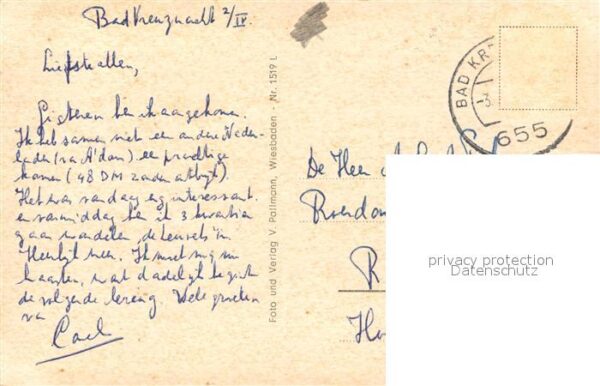 Bad Kreuznach 2/IV.
Liefste allen,
Gisteren ben ik aangekomen.
Ik heb samen met een andere Neder-
lander (ra A'dam) een prachtige
kamer (48 DM zonder ontbijt).
Het was vandaag erg interessant
en vanmiddag ben ik 3 kwartier
gaan wandelen, de heuvels in.
Heerlijk weer. Ik moet nog
kaarten, want dadelijk begint
de volgende lezing. Vele groeten
van
Foto und Verlag V. Pallmann, Wiesbaden - Nr. 1519 L
BAD KR
-3.
655
De Heer
R
privacy protection
Datenschutz